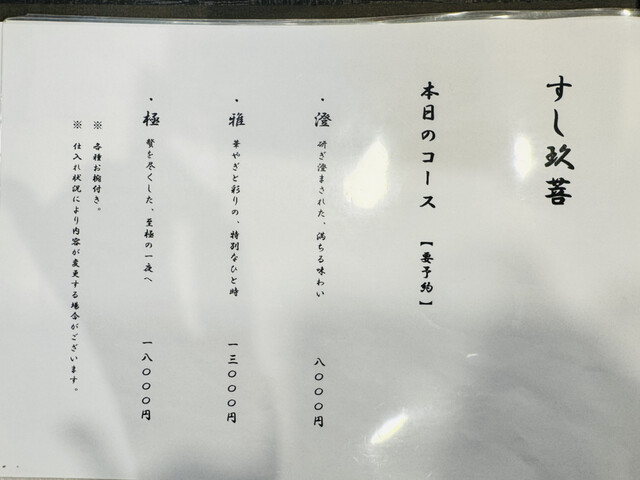 すし玖菩
本日のコース 【要予約】
・澄 研ぎ澄まされた、満ちる味わい 八〇〇〇円
・雅 華やぎと彩りの、特別なひと時 一三〇〇〇円
・極 贅を尽くした、至極の一夜へ 一八〇〇〇円
※ 各種お椀付き。
※ 仕入れ状況により内容が変更する場合がございます。